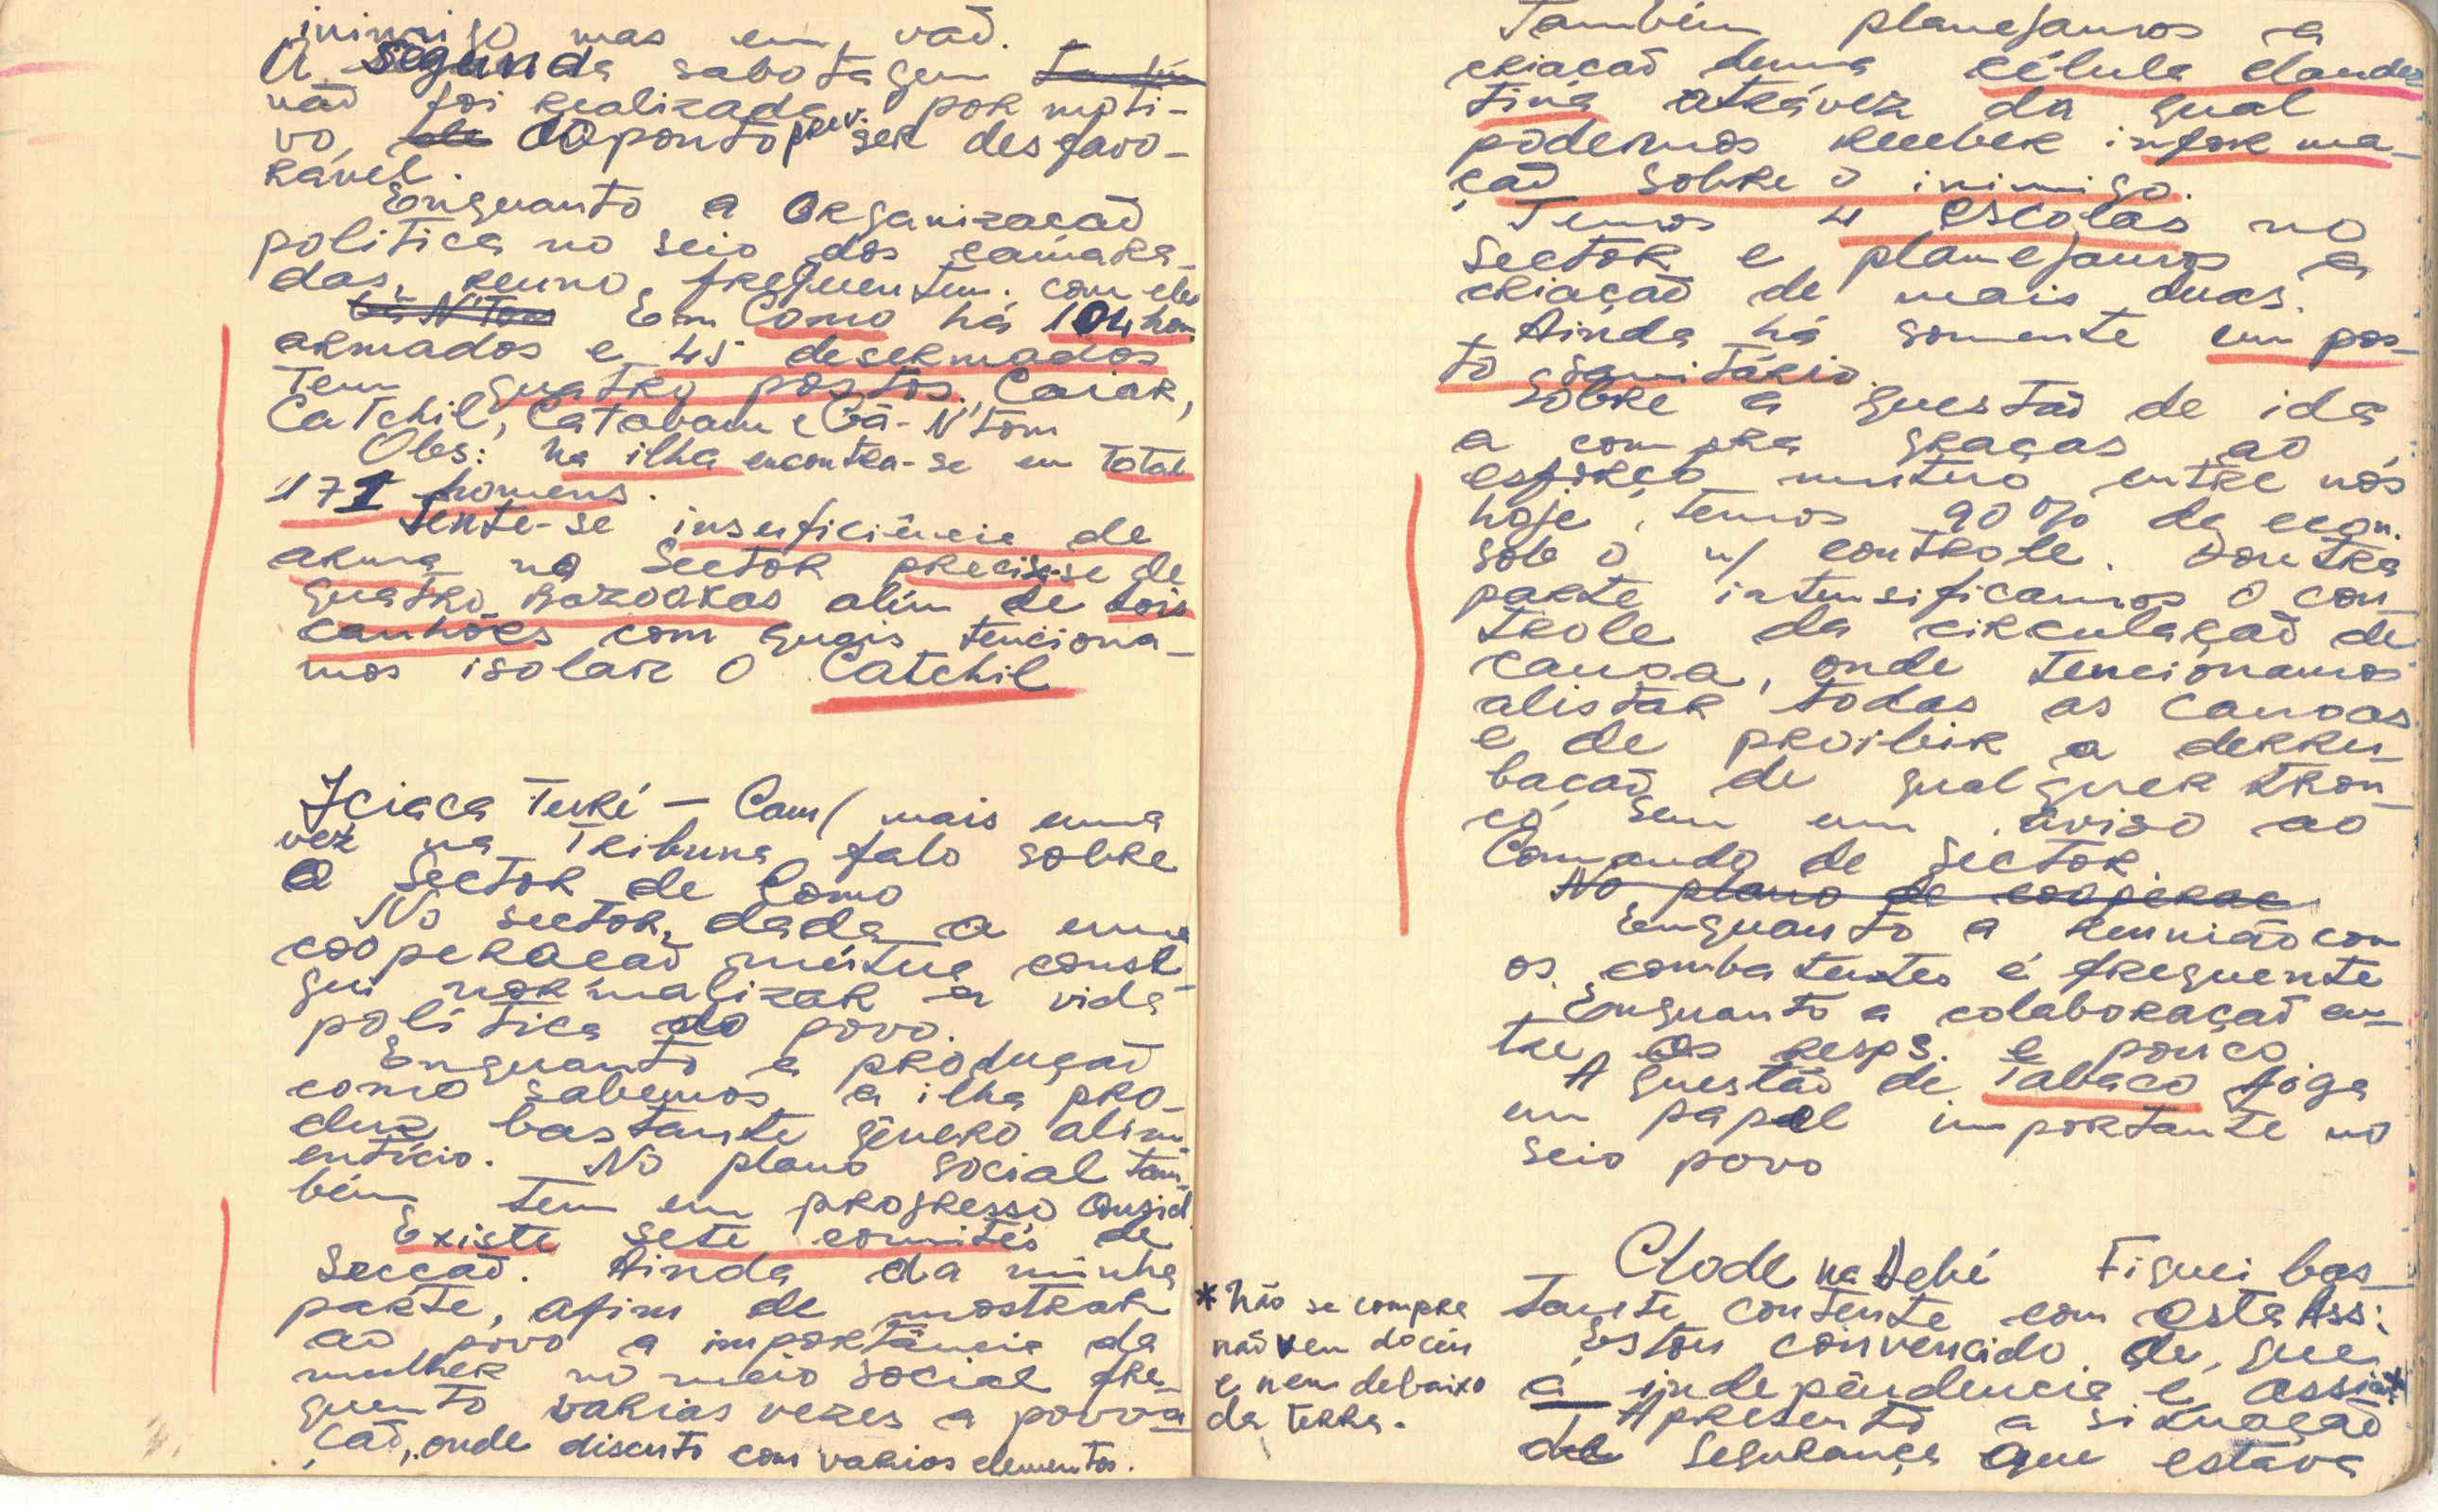 inimigo mas em vaõ.
A segunda sabotagem
naõ foi realizada por moti-
vo, do ponto prev. ser desfavo-
ravel.
Enguanto a Organizaçaõ
politica no seio dos camara-
das, reuno frequentem. com eles
Gã N'Tom Em Como há 104 hom.
armados e 45 desermados
Tem quatro postos. Caiar,
Catchil, Catabam e Gã-N'Tom
Obs: na ilha encontra-se em total
171 homens.
Sente-se insuficiência de
arma no Sector precisa-se de
quatro Bazookas além de dois
canhões com quais tenciona-
mos isolar o Catchil
Iciaca Turé — Cam/ mais uma
vez na Tribuna falo sobre
o Sector de Como
No sector, dada a uma
cooperaçaõ mútua conse-
gui normalizar a vida
política do povo.
Enquanto a produçaõ
como sabemos, a ilha pro-
duz bastante género alim-
entício. No plano social tam-
bém tem um progresso consid.
Existe sete comités de
Secçaõ. Ainda da minha
parte, afim de mostrar
ao povo a importância da
mulher no meio social fre-
quento varias vezes a povoa-
çaõ, onde discuto com varios elementos.
Também planejamos a
criaçaõ duma célula clandes-
tina atrávez da qual
podemos receber informa-
çaõ sobre o inimigo.
Temos 4 escolas no
Sector e planejamos a
criaçaõ de mais duas.
Ainda há somente um pos-
to sanitário.
Sobre a questaõ de ida
a compra graças ao
esforço mutuo entre nós
hoje, temos 90% da econ.
sob o n/ controle. Doutra
parte intensificamos o con-
trole da circulaçaõ de
canoa, onde tencionamos
alistar todas as canoas
e de proibir a derru-
baçaõ de qualquer tron-
co sem um aviso ao
Comando de Sector.
No plano de cooperac
Enquanto a reunião com
os combatentes é frequente
Enquanto a colaboraçaõ en-
tre os resps. e pouco
A questaõ de Tabaco joga
um papel importante no
seio povo
Clode na Debé Fiquei bas-
tante contente com esta Ass:
Estou convencido de, que
a independência e assim*
Apresento a situaçaõ
de Segurança que estava
* não se compra
naõ vem do céu
e nem debaixo
da terra.